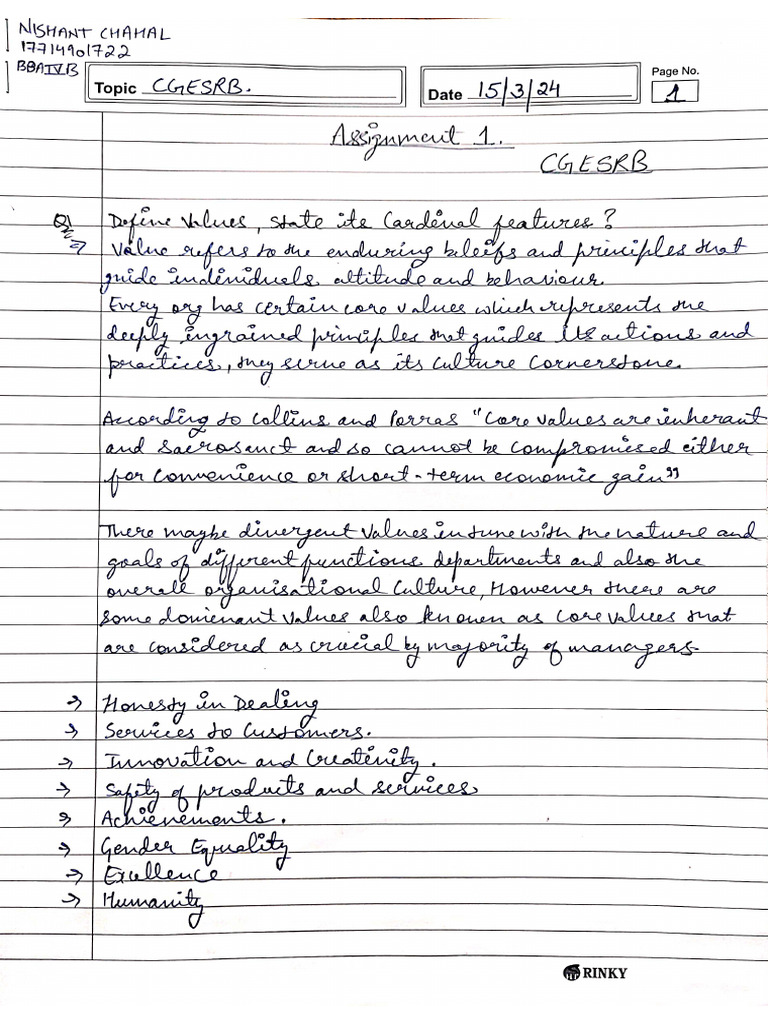 NISHANT CHAHAL
17714901722
BBA IV B
Topic CGESRB.
Date 15/3/24
Page No.
1
Assignment 1.
CGESRB
Q1 Define Values, State its Cardinal features?
⇒ Value refers to the enduring beleifs and principles that
guide individuals altitude and behaviour.
Every org has certain core values which represents the
deeply ingrained principles that guides its actions and
practices, they serve as its culture cornerstone.
According to Collins and Porras "Core values are inherant
and sacrosanct and so cannot be compromised either
for convenience or short-term economic gain"
There maybe divergent values in tune with the nature and
goals of different functions departments and also the
overall organisational culture, However there are
some dominant values also known as core values that
are considered as crucial by majority of managers.
→ Honesty in Dealing
→ Services to Customers.
→ Innovation and Creativity.
→ Safity of products and services
→ Achievements.
→ Gender Equality
→ Excellence
→ Humanity
RINKY